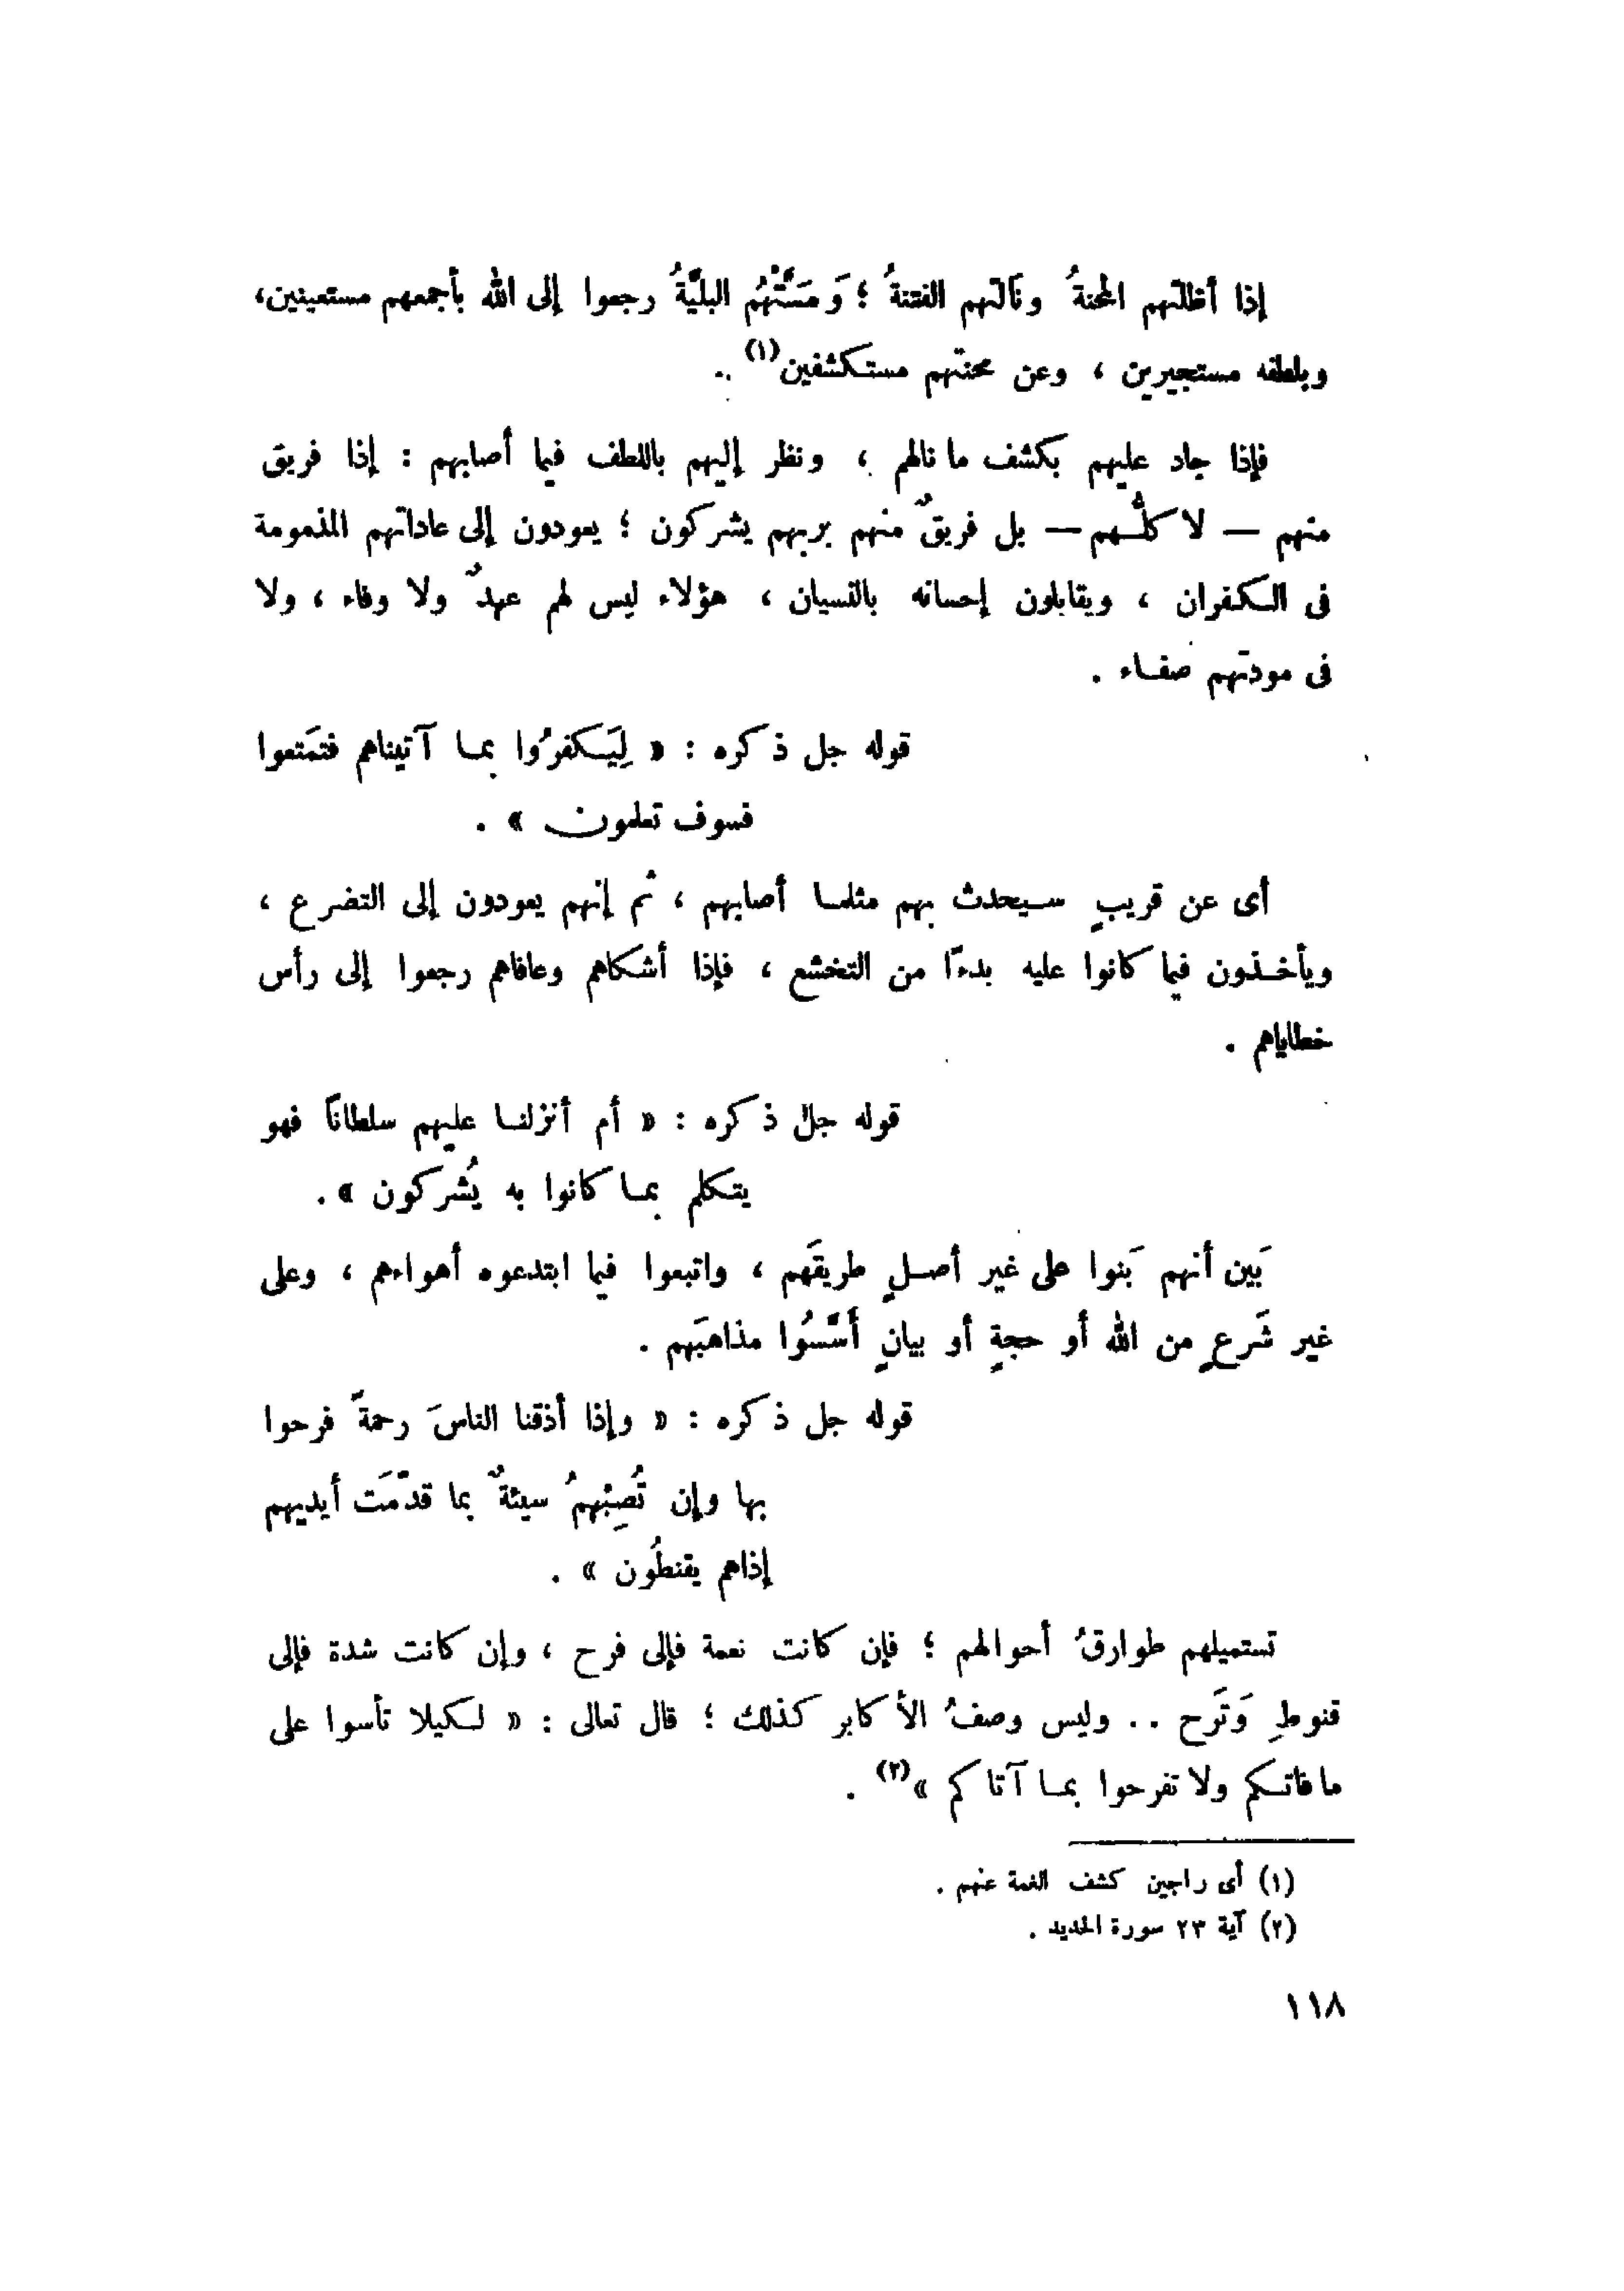 إذا أظلتهم المحنةُ ونَالتهم الفتنةُ ؛ وَمَسَّتْهُم البليَّةُ رجعوا إلى الله بأجمعهم مستعينين،
وبلطفه مستجيرين ، وعن محنتهم مستكشفين(١) .
فإذا جاد عليهم بكشف ما نالهم ، ونظر إليهم باللطف فيما أصابهم : إذا فريق
منهم — لا كلُّهم — بل فريقٌ منهم بربهم يشركون ؛ يعودون إلى عاداتهم المذمومة
فى الكفران ، ويقابلون إحسانه بالنسيان ، هؤلاء ليس لهم عهدٌ ولا وفاء ، ولا
فى مودتهم صفاء .
قوله جل ذكره : « لِيَكفرُوا بما آتيناهم فتمَتعوا
فسوف تعلمون » .
أى عن قريبٍ سيحدث بهم مثلما أصابهم ، ثم إنهم يعودون إلى التضرع ،
ويأخذون فيما كانوا عليه بدءًا من التخشع ، فإذا أشكاهم وعافاهم رجعوا إلى رأس
خطاياهم .
قوله جلّ ذكره : « أم أنزلنا عليهم سلطاناً فهو
يتكلم بما كانوا به يُشركون » .
بَين أنهم بَنوا على غير أصلٍ طريقَهم ، واتبعوا فيما ابتدعوه أهواءهم ، وعلى
غير شَرعٍ من الله أو حجةٍ أو بيانٍ أَسَّسُوا مذاهبَهم .
قوله جل ذكره : « وإذا أذقنا الناسَ رحمةً فرحوا
بها وإن تُصِبْهمُ سيئةٌ بما قدّمَت أيديهم
إذاهم يقنطُون » .
تستميلهم طوارقُ أحوالهم ؛ فإن كانت نعمة فإلى فرح ، وإن كانت شدة فإلى
قنوطٍ وَتَرح .. وليس وصفُ الأكابر كذلك ؛ قال تعالى : « لكيلا تأسوا على
ما فاتكم ولا تفرحوا بما آتاكم »(٢) .
(١) أى راجين كشف الغمة عنهم .
(٢) آية ٢٣ سورة الحديد .
١١٨